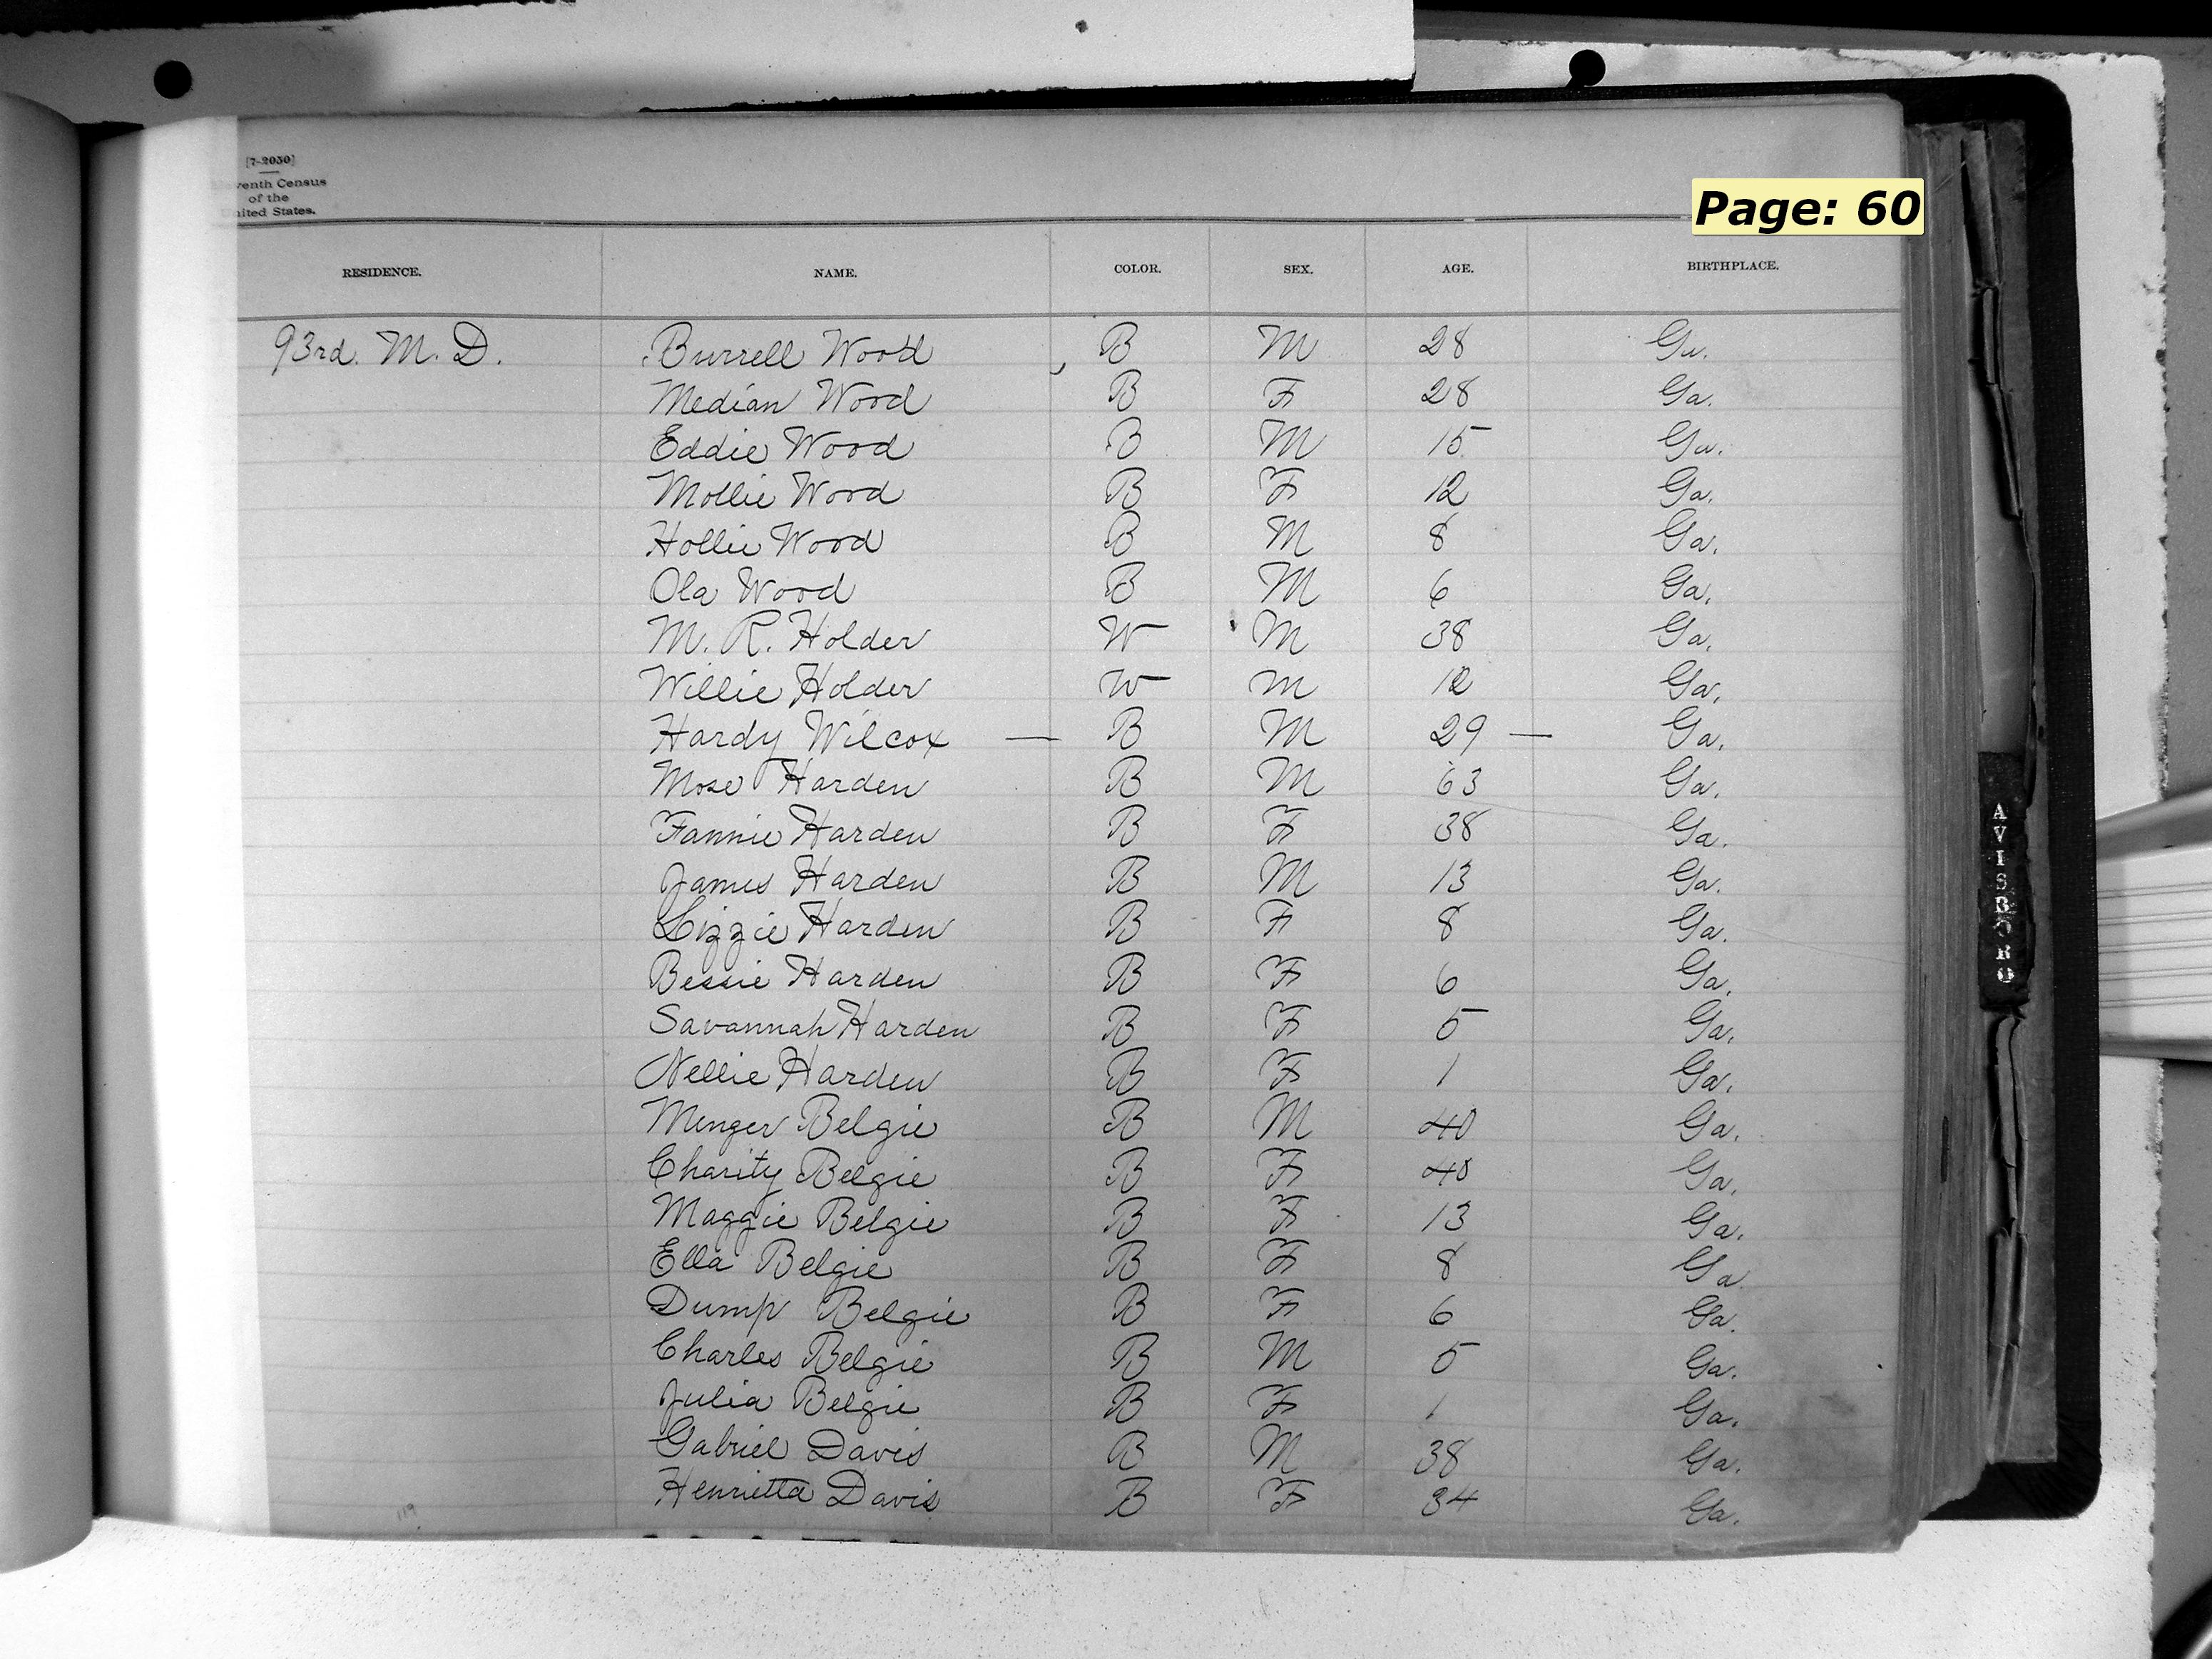 [7-2050]
venth Census
of the
United States.
Page: 60
RESIDENCE. NAME. COLOR. SEX. AGE. BIRTHPLACE.
93rd. M. D. Burrell Wood B M 28 Ga.
Median Wood B F 28 Ga.
Eddie Wood B M 15 Ga.
Mollie Wood B F 12 Ga.
Hollie Wood B M 8 Ga.
Ola Wood B M 6 Ga.
M. R. Holder W M 38 Ga.
Willie Holder W M 12 Ga.
Hardy Wilcox — B M 29 — Ga.
Mose Harden B M 63 Ga.
Fannie Harden B F 38 Ga.
James Harden B M 13 Ga.
Lizzie Harden B F 8 Ga.
Bessie Harden B F 6 Ga.
Savannah Harden B F 5 Ga.
Nellie Harden B F 1 Ga.
Menger Belgie B M 40 Ga.
Charity Belgie B F 40 Ga.
Maggie Belgie B F 13 Ga.
Ella Belgie B F 8 Ga
Dump Belgie B F 6 Ga.
Charles Belgie B M 5 Ga.
Julia Belgie B F 1 Ga.
Gabriel Davis B M 38 Ga.
Henrietta Davis B F 34 Ga.
119